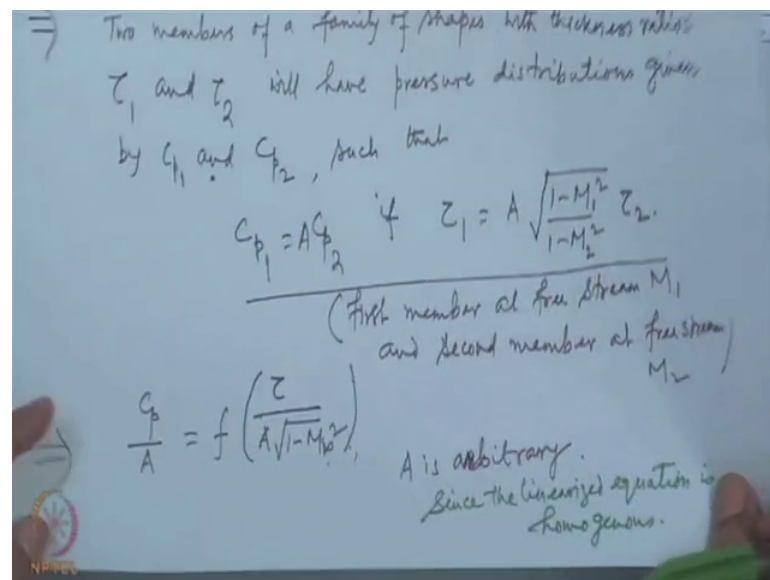 ⇒ Two members of a family of shapes with thickness ratios
τ₁ and τ₂ will have pressure distributions given
by Cp₁ and Cp₂, such that
Cp₁ = A Cp₂ if τ₁ = A √((1-M₁²)/(1-M₂²)) τ₂.
(First member at free stream M₁
and second member at free stream
M₂)
⇒ Cp/A = f(τ/(A√(1-M∞²)))
A is arbitrary.
Since the linearized equation is
homogenous.
NPTEL